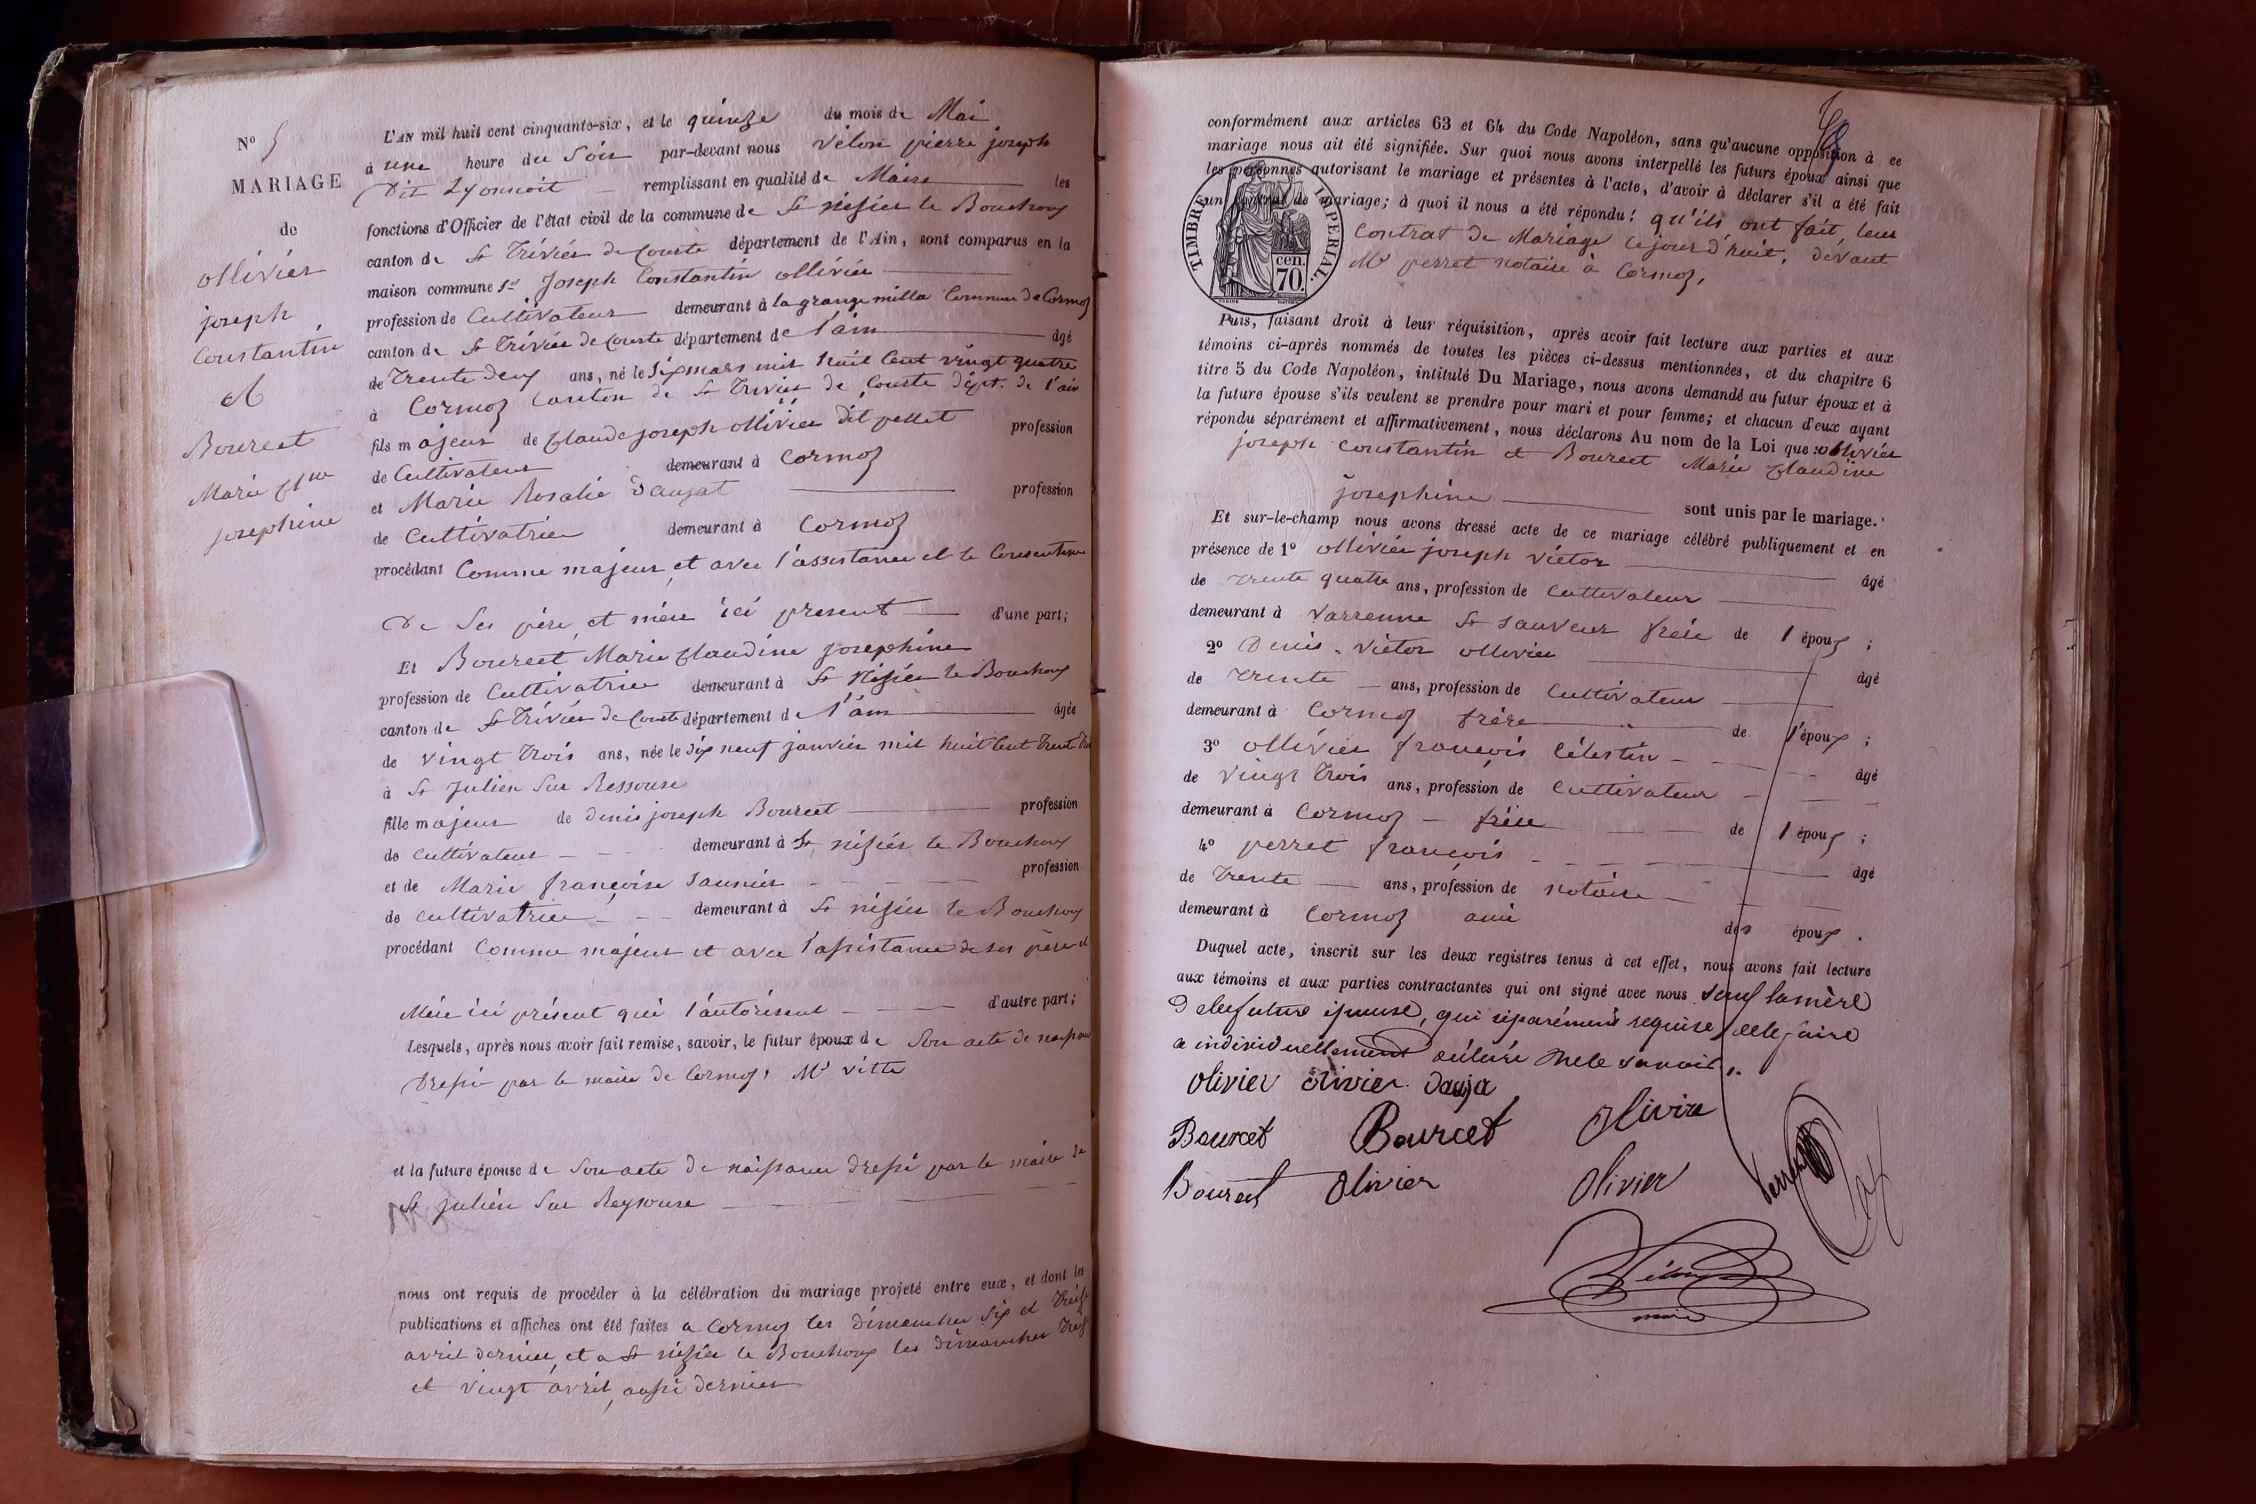 N° 5
MARIAGE
de
ollivier
joseph
Constantin
et
Bourcet
Marie Cl^ine
josephine
L'AN mil huit cent cinquante-six, et le quinze du mois de Mai
à une heure du Soir par-devant nous vélon pierre joseph
Dit Lyonnois remplissant en qualité de Maire les
fonctions d'Officier de l'état civil de la commune de St Nisier le Bouchoux
canton de St Trivier de Courte département de l'Ain, sont comparus en la
maison commune Sr Joseph Constantin ollivier
profession de Cultivateur demeurant à la grange milla Commune de Cormoz
canton de St Trivier de Courte département de l'ain âgé
de Trente deux ans, né le Six mars mil huit Cent vingt quatre
à Cormoz Canton de St Trivier de Courte dépt. de l'ain
fils majeur de Claude joseph ollivier dit pellet profession
de Cultivateur demeurant à Cormoz
et Marie Rosalie Daujat profession
de Cultivatrice demeurant à Cormoz
procédant Comme majeur et avec l'assistance et le Consentement
De Ses père et mère ici présent d'une part;
Et Bourcet Marie Claudine Josephine
profession de Cultivatrice demeurant à St Nisier le Bouchoux
canton de St Trivier de Courte département de l'ain âgée
de vingt trois ans, née le dix neuf janvier mil huit Cent Trente Trois
à St Julien Sur Ressouse
fille majeur de denis joseph Bourcet profession
de cultivateur demeurant à St nisier le Bouchoux
et de Marie françoise Saunier profession
de cultivatrice demeurant à St nisier le Bouchoux
procédant Comme majeur et avec l'assistance de ses père et
Mère ici présent qui l'autorisent d'autre part;
Lesquels, après nous avoir fait remise, savoir, le futur époux de Son acte de naissance
Dressé par le maire de Cormoz, Mr vitte
et la future épouse de Son acte de naissance dressé par le maire de
St Julien Sur Reyssouse
nous ont requis de procéder à la célébration du mariage projeté entre eux, et dont les
publications et affiches ont été faites a Cormoz les dimanches Six et Treize
avril dernier, et a St nisier le Bouchoux les dimanches Treize
et vingt avril, aussi dernier
conformément aux articles 63 et 64 du Code Napoléon, sans qu'aucune opposition à ce
mariage nous ait été signifiée. Sur quoi nous avons interpellé les futurs époux ainsi que
les personnes autorisant le mariage et présentes à l'acte, d'avoir à déclarer s'il a été fait
un contrat de mariage; à quoi il nous a été répondu: qu'ils ont fait leur
Contrat de Mariage cejourd'huit, devant
Mr perret notaire à Cormoz,
TIMBRE IMPERIAL.
cen.
70.
Puis, faisant droit à leur réquisition, après avoir fait lecture aux parties et aux
témoins ci-après nommés de toutes les pièces ci-dessus mentionnées, et du chapitre 6
titre 5 du Code Napoléon, intitulé Du Mariage, nous avons demandé au futur époux et à
la future épouse s'ils veulent se prendre pour mari et pour femme; et chacun d'eux ayant
répondu séparément et affirmativement, nous déclarons Au nom de la Loi que ollivier
joseph Constantin et Bourcet Marie Claudine
josephine sont unis par le mariage.
Et sur-le-champ nous avons dressé acte de ce mariage célébré publiquement et en
présence de 1° ollivier joseph victor âgé
de trente quatre ans, profession de Cultivateur
demeurant à varrenne St sauveur frère de l'époux ;
2° Denis victor ollivier âgé
de trente ans, profession de Cultivateur
demeurant à Cormoz frère de l'époux ;
3° ollivier françois Célestin âgé
de vingt trois ans, profession de Cultivateur
demeurant à Cormoz frère de l'époux ;
4° perret françois âgé
de Trente ans, profession de notaire
demeurant à Cormoz ami des époux .
Duquel acte, inscrit sur les deux registres tenus à cet effet, nous avons fait lecture
aux témoins et aux parties contractantes qui ont signé avec nous sauf la mère
de la future épouse, qui séparément requise de le faire
a individuellement déclaré ne le savoir.
olivier olivier Dauja
Bourcet Bourcet Olivier
Bourcet Olivier Olivier Perret
Vélon
maire